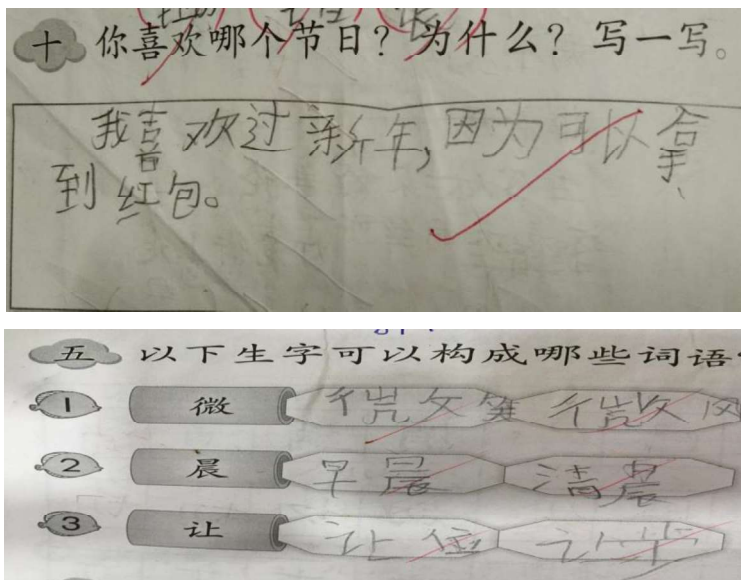 十 你喜欢哪个节日？为什么？写一写。
我喜欢过新年，因为可以拿
到红包。
五 以下生字可以构成哪些词语
1 微 微笑 微风
2 晨 早晨 清晨
3 让 让位 让